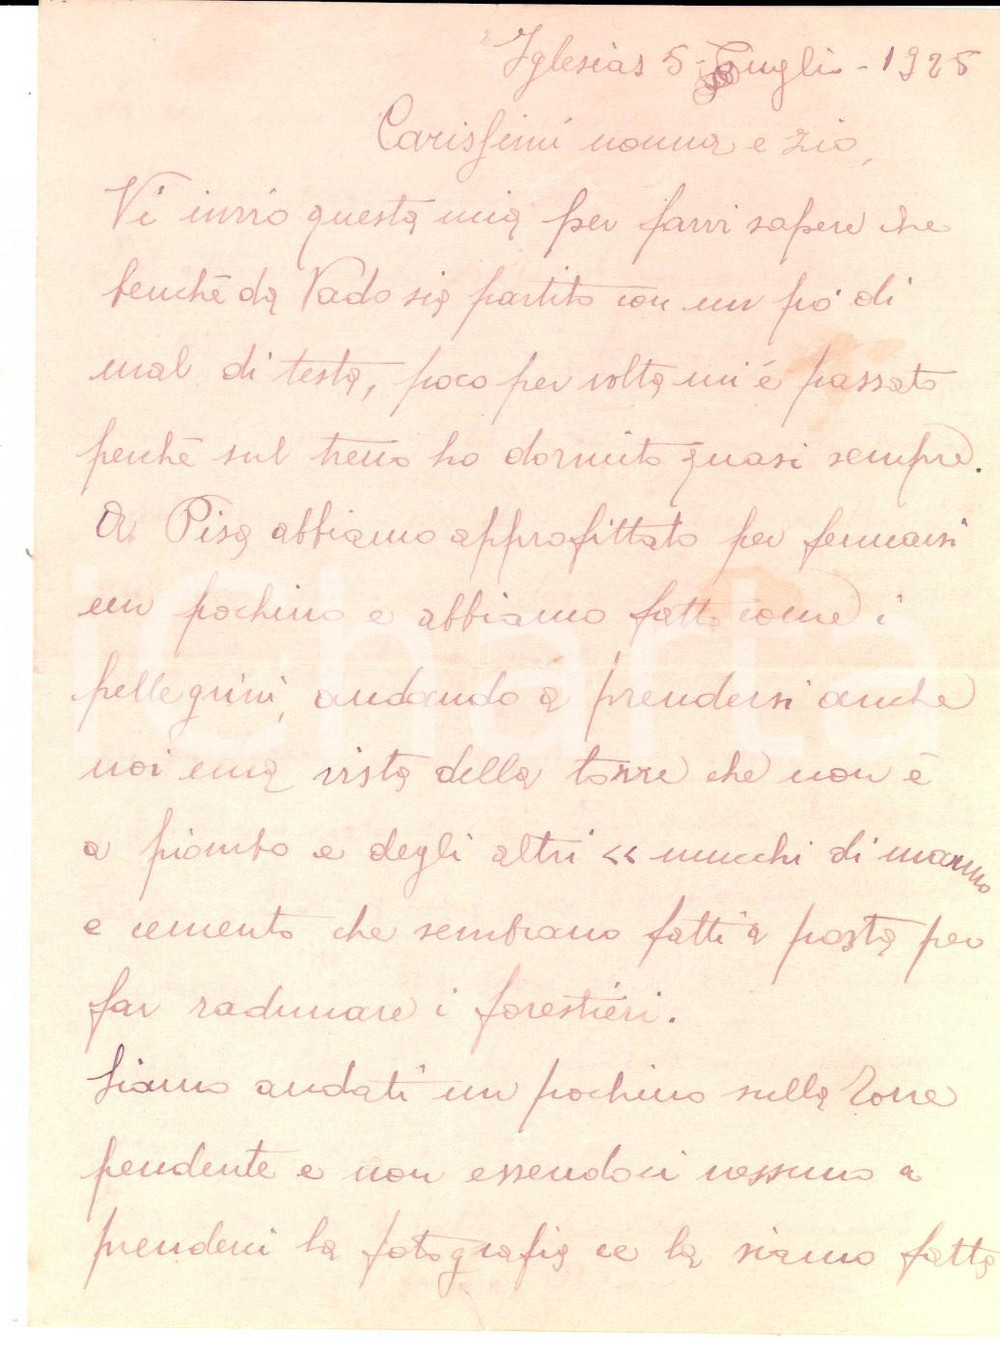 Iglesias 5 - Luglio - 1925
Carissimi nonna e zio,
Vi invio questa mia per farvi sapere che
benchè da Vado sia partito con un pò di
mal di testa, poco per volta mi è passato
perchè sul treno ho dormito quasi sempre.
A Pisa abbiamo approfittato per fermarsi
un pochino e abbiamo fatto come i
pellegrini, andando a prendersi anche
noi una vista della torre che non è
a piombo e degli altri << mucchi di marmo
e cemento che sembrano fatti a posta per
far radunare i forestieri.
Siamo andati un pochino sulla Torre
pendente e non essendoci nessuno a
prenderci la fotografia ce la siamo fatta
iCharta